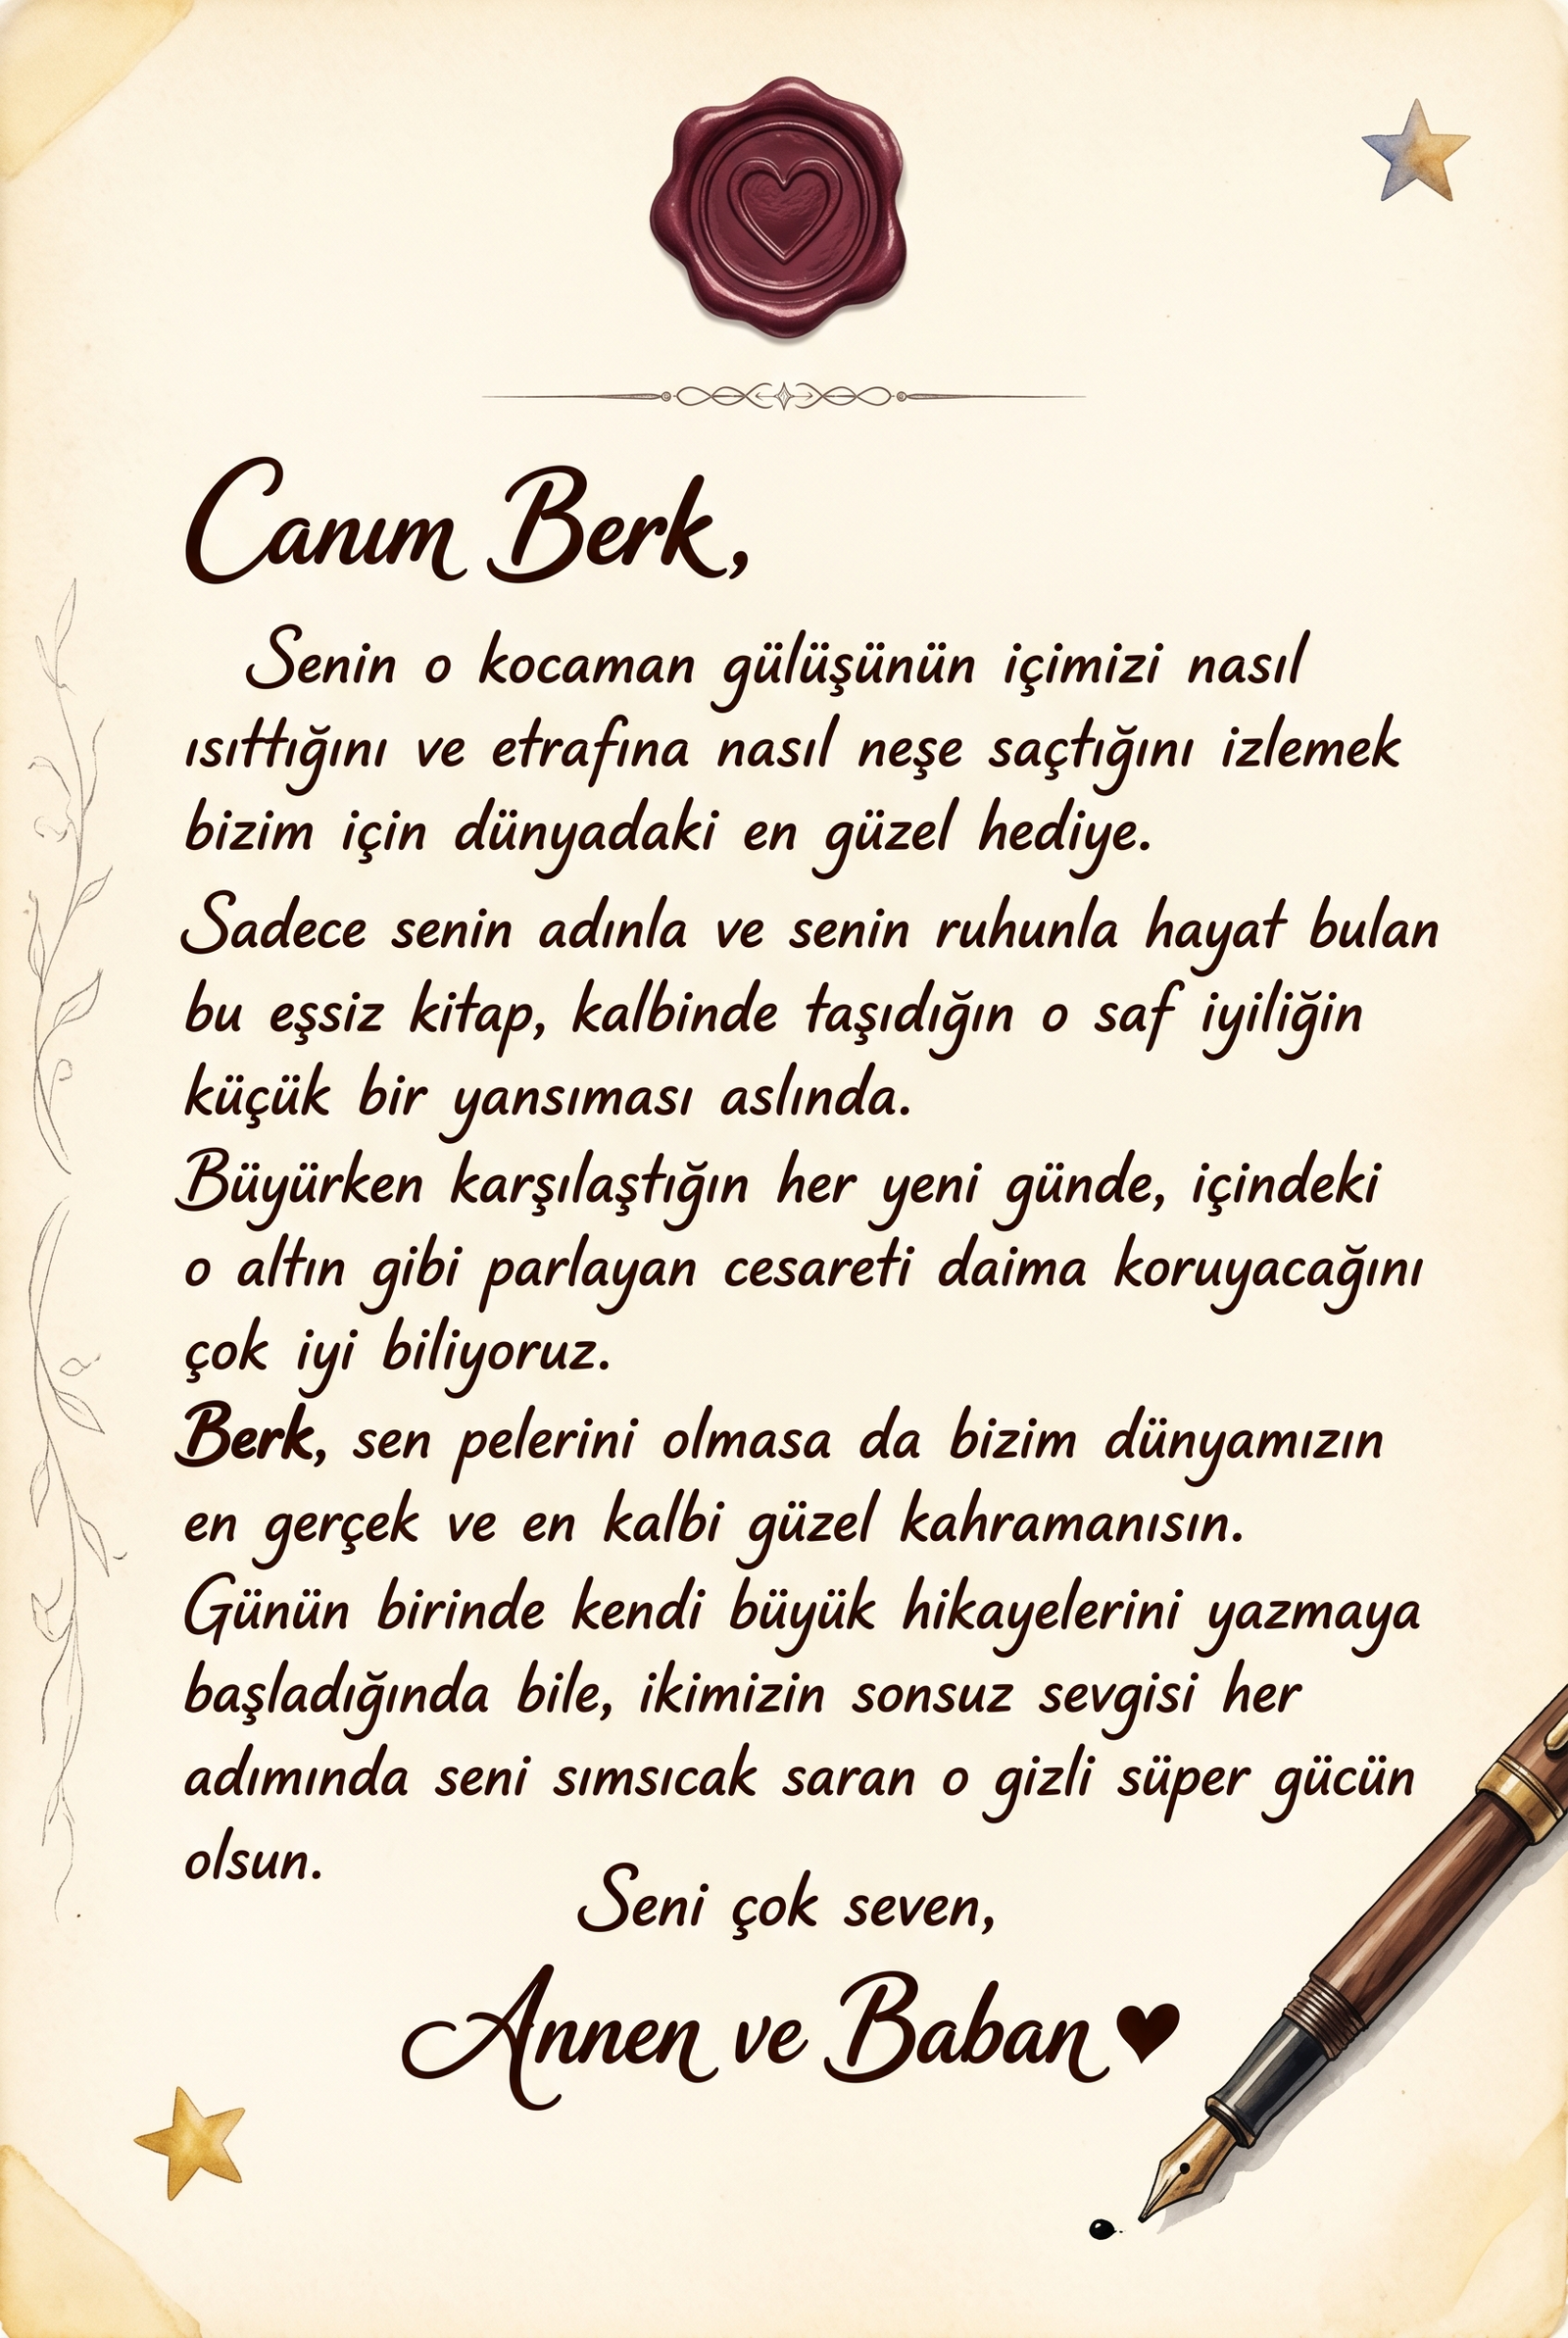 Canım Berk,
Senin o kocaman gülüşünün içimizi nasıl
ısıttığını ve etrafına nasıl neşe saçtığını izlemek
bizim için dünyadaki en güzel hediye.
Sadece senin adınla ve senin ruhunla hayat bulan
bu eşsiz kitap, kalbinde taşıdığın o saf iyiliğin
küçük bir yansıması aslında.
Büyürken karşılaştığın her yeni günde, içindeki
o altın gibi parlayan cesareti daima koruyacağını
çok iyi biliyoruz.
Berk, sen pelerini olmasa da bizim dünyamızın
en gerçek ve en kalbi güzel kahramanısın.
Günün birinde kendi büyük hikayelerini yazmaya
başladığında bile, ikimizin sonsuz sevgisi her
adımında seni sımsıcak saran o gizli süper gücün
olsun.
Seni çok seven,
Annen ve Baban ♥